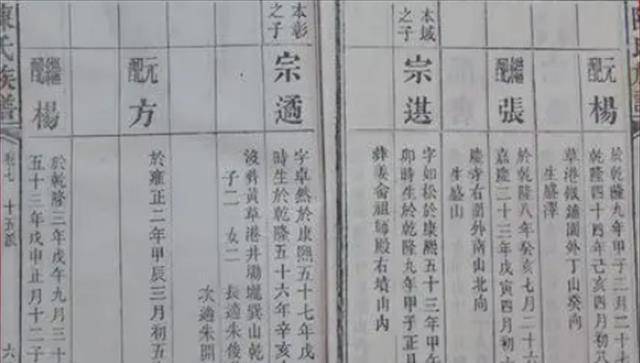 元配
楊
於乾隆九年甲子三月二十
乾隆四十四年己亥四月初
草港鐵鋪園外丁山癸向
生盛澤
繼配
張
於乾隆八年癸亥七月二十
嘉慶二十三年戊寅四月初
慶寺右翦外南山北向
生盛山
本域之子
宗湛
字如松於康熙五十三年甲午
卯時生於乾隆九年甲子正月
葬姜侖祖師殿右墳山內
本彰之子
宗適
字卓然於康熙五十七年戊
時生於乾隆五十六年辛亥
葬黃草港井塝壠巽山乾
子二 女二 長適朱俊
次適朱開
元配
方
於雍正二年甲辰三月初五
繼配
楊
於乾隆三年戊午九月三十
五十三年戊申正月十二子
陳氏族譜
卷七 十五派 六